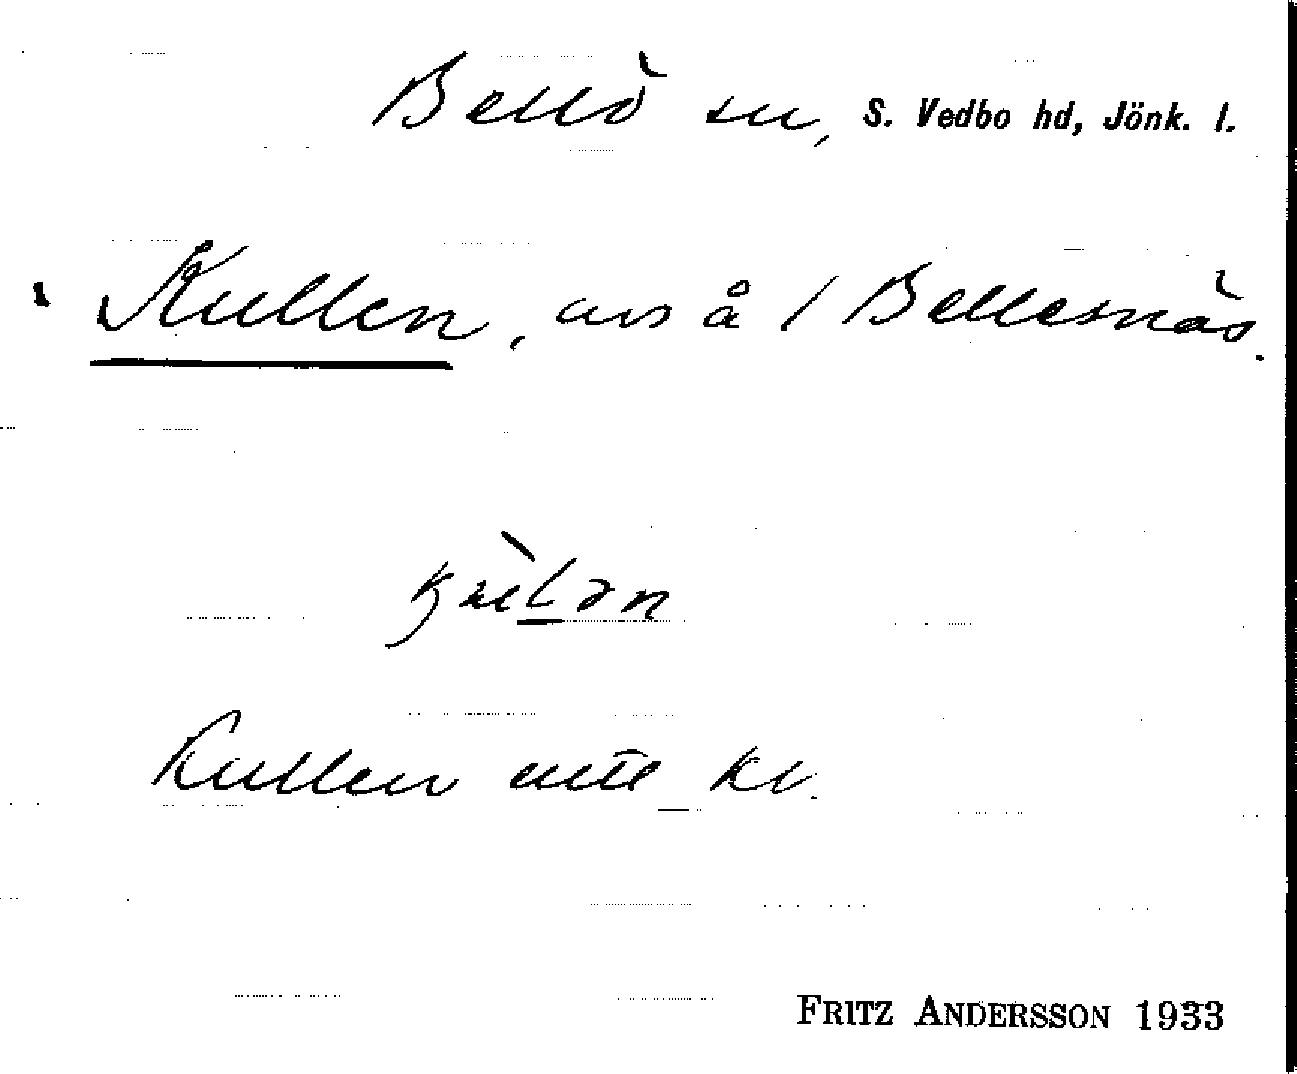 Bellö sn, S. Vedbo hd, Jönk. l.
Kullen, avs å 1 Bellesnäs.
Kullen enl. kv.
FRITZ ANDERSSON 1933